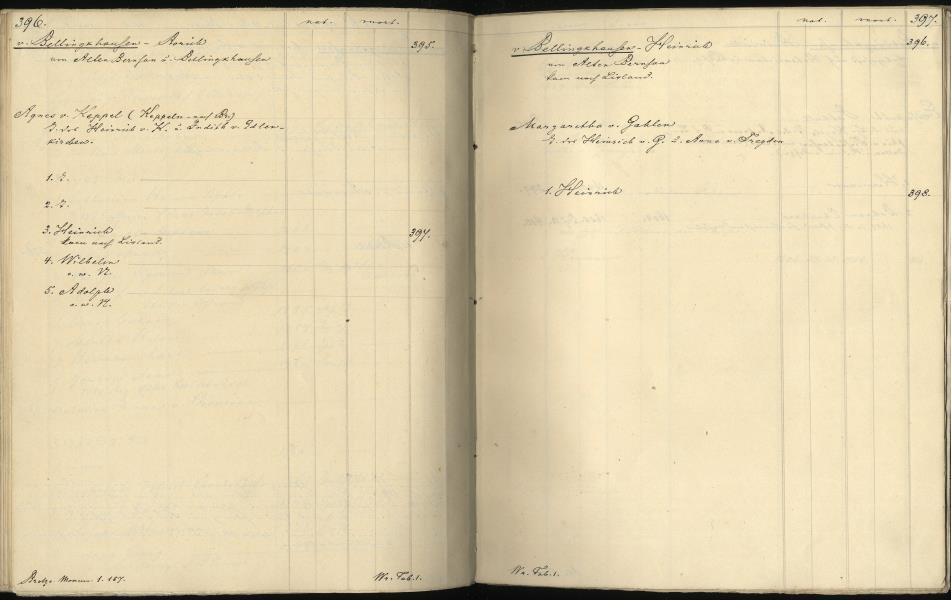 396.
nat. mort.
v. Bellingkhausen - Rorich 395.
von Alten Bernsau u. Bellingkhausen
Agnes v. Keppel (Keppeln - nach Br.)
T. des Heinrich v. K. u. Judith v. Edlen-
kirchen.
1. T.
2. T.
3. Heinrich 397.
kam nach Livland.
4. Wilhelm
o. w. N.
5. Adolph
o. w. N.
Brotze Monum. 1. 157. Wr. Tab. 1.
nat. mort. 397.
v. Bellingkhausen - Heinrich 396.
von Alten Bernsau
kam nach Livland.
Margaretha v. Gahlen
T. des Heinrich v. G. u. Anna v. Tregden
1. Heinrich 398.
Wr. Tab. 1.